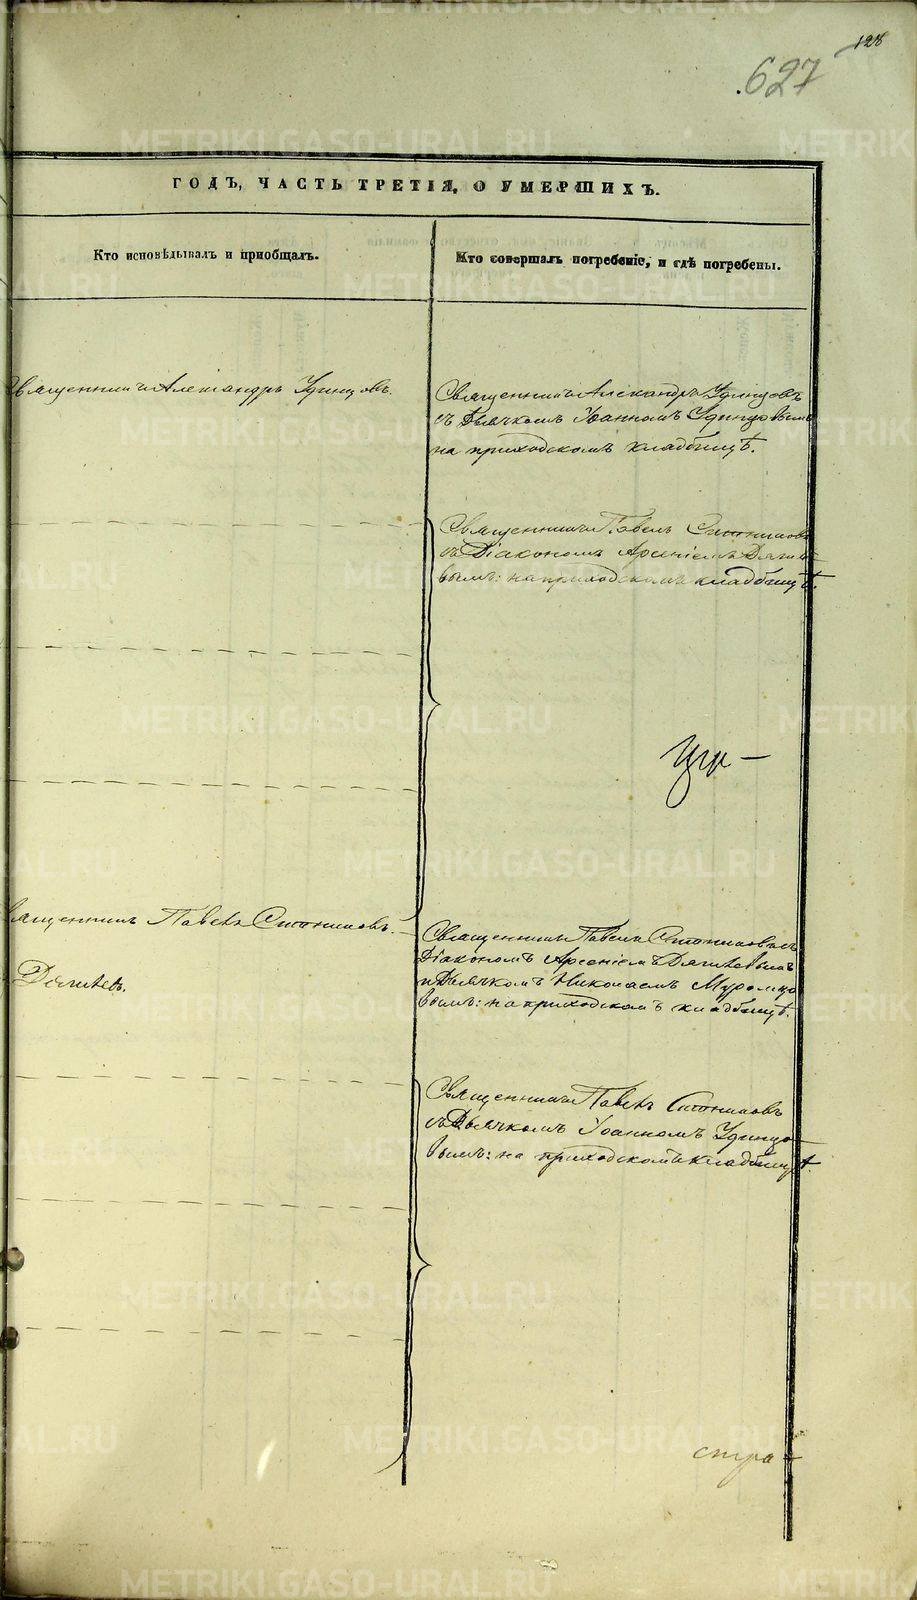 128
627
ГОДЪ, ЧАСТЬ ТРЕТІЯ, О УМЕРШИХЪ.
Кто исповѣдывалъ и пріобщалъ.
Кто совершалъ погребеніе, и гдѣ погребены.
Священникъ Александръ Удинцовъ.
Священникъ Александръ Удинцовъ
съ Дьячкомъ Іоанномъ Удинцовымъ
на приходскомъ кладбищѣ.
Священникъ Павелъ
съ Діакономъ Арсеніемъ
вымъ: на приходскомъ кладбищѣ.
Священникъ Павелъ
Священникъ Павелъ
Діакономъ Арсеніемъ
и Дьячкомъ Николаемъ Муромцо
вымъ: на приходскомъ кладбищѣ.
Священникъ Павелъ
съ Дьячкомъ Іоанномъ Удинцо
вымъ: на приходскомъ кладбищѣ.
METRIKI.GASO-URAL.RU